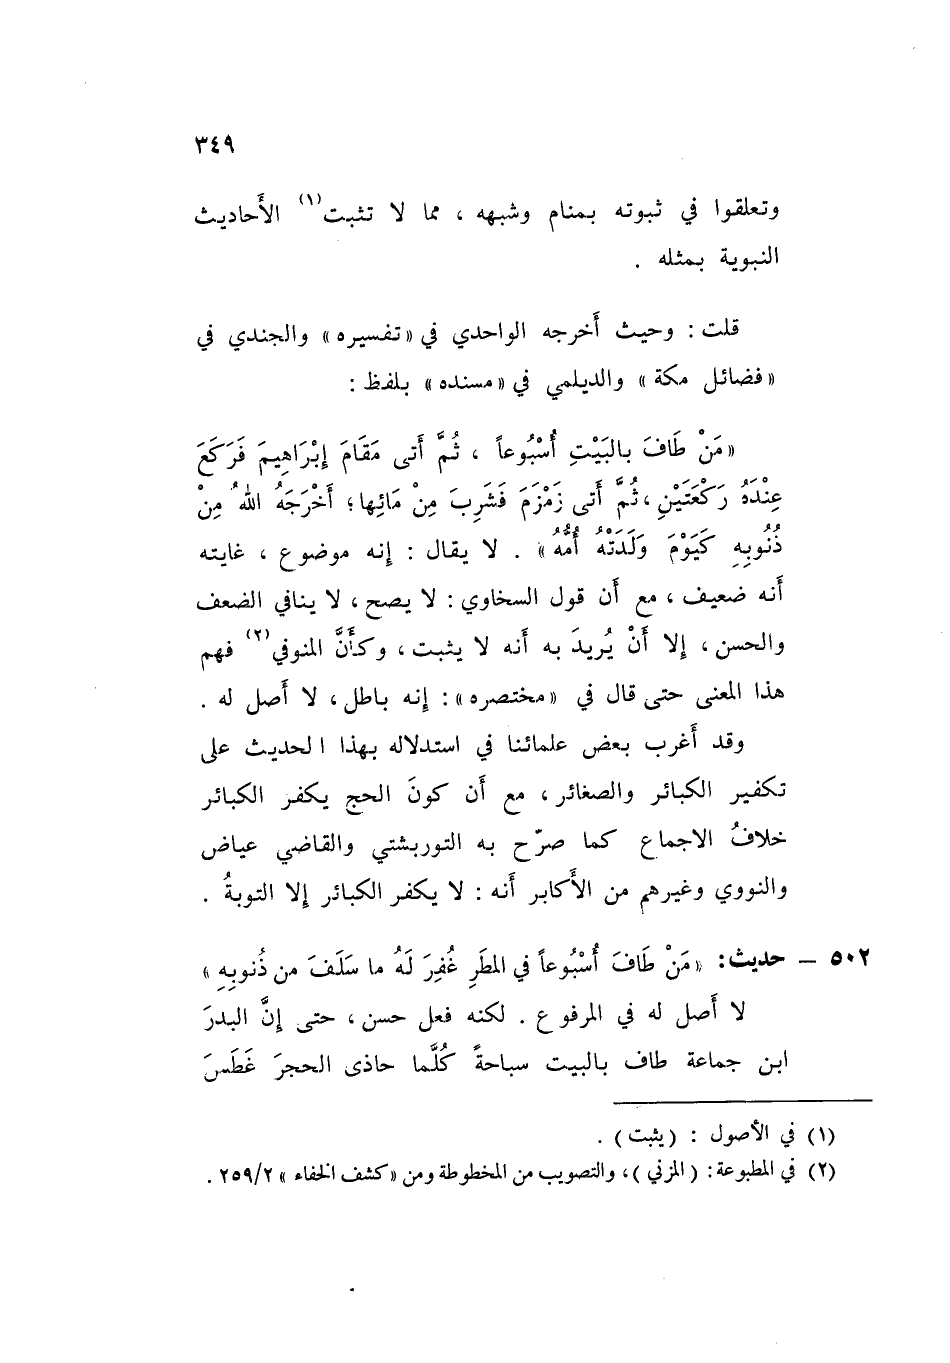 ٣٤٩
وتعلقوا في ثبوته بمنام وشبهه ، مما لا تثبت(١) الأَحاديث
النبوية بمثله .
قلت : وحيث أَخرجه الواحدي في «تفسيره» والجندي في
«فضائل مكة» والديلمي في «مسنده» بلفظ :
«مَنْ طَافَ بالبَيْتِ أُسْبُوعاً ، ثُمَّ أَتى مَقَامَ إِبْرَاهِيمَ فَرَكَعَ
عِنْدَهُ رَكْعَتَيْنِ ، ثُمَّ أَتى زَمْزَمَ فَشَرِبَ مِنْ مَائِها؛ أَخْرَجَهُ اللهُ مِنْ
ذُنُوبِهِ كَيَوْمَ وَلَدَتْهُ أُمُّهُ» . لا يقال : إِنه موضوع ، غايته
أَنه ضعيف ، مع أَن قول السخاوي : لا يصح ، لا ينافي الضعف
والحسن ، إِلا أَنْ يُريدَ به أَنه لا يثبت ، وكأَنَّ المنوفي(٢) فهم
هذا المعنى حتى قال في «مختصره» : إِنه باطل ، لا أَصل له .
وقد أَغرب بعض علمائنا في استدلاله بهذا الحديث على
تكفير الكبائر والصغائر ، مع أَن كونَ الحج يكفر الكبائر
خلافُ الاجماع كما صرّح به التوربشتي والقاضي عياض
والنووي وغيرهم من الأَكابر أَنه : لا يكفر الكبائر إِلا التوبةُ .
٥٠٢ – حديث: «مَنْ طَافَ أُسْبُوعاً في المطَرِ غُفِرَ لَهُ ما سَلَفَ من ذُنوبِهِ»
لا أَصل له في المرفوع . لكنه فعل حسن ، حتى إِنَّ البدرَ
ابن جماعة طاف بالبيت سباحةً كُلَّما حاذى الحجرَ غَطَسَ
(١) في الأصول : (يثبت) .
(٢) في المطبوعة : (المزني) ، والتصويب من المخطوطة ومن «كشف الخفاء» ٢/٢٥٩ .